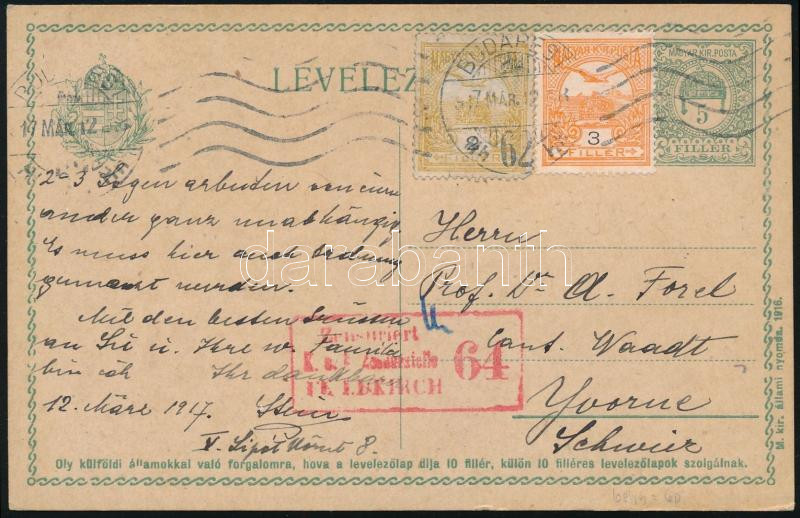 LEVELEZ
MAGYAR KIR. POSTA
3
FILLÉR
MAGYAR KIR. POSTA
5
FILLÉR
BUDAPEST
17 MÁR. 12
62
2-3 Tagen arbeiten voneinander
ander ganz unabhängig
Es muss hier auch Ordnung
gemacht werden.
Mit den besten Grüssen
an Sie u. Ihre w. Familie
bin ich Ihr dankbarer
12. März 1917. Stein
V. Lipót körut 8.
Herrn
Prof. Dr. A. Forel
Cant. Waadt
Yvorne
Schweiz
Zensuriert
K. u. k. Zensurstelle
FELDKIRCH
64
Oly külföldi államokkal való forgalomra, hova a levelezőlap díja 10 fillér, külön 10 filléres levelezőlapok szolgálnak.
M. kir. állami nyomda. 1916.
darabanth